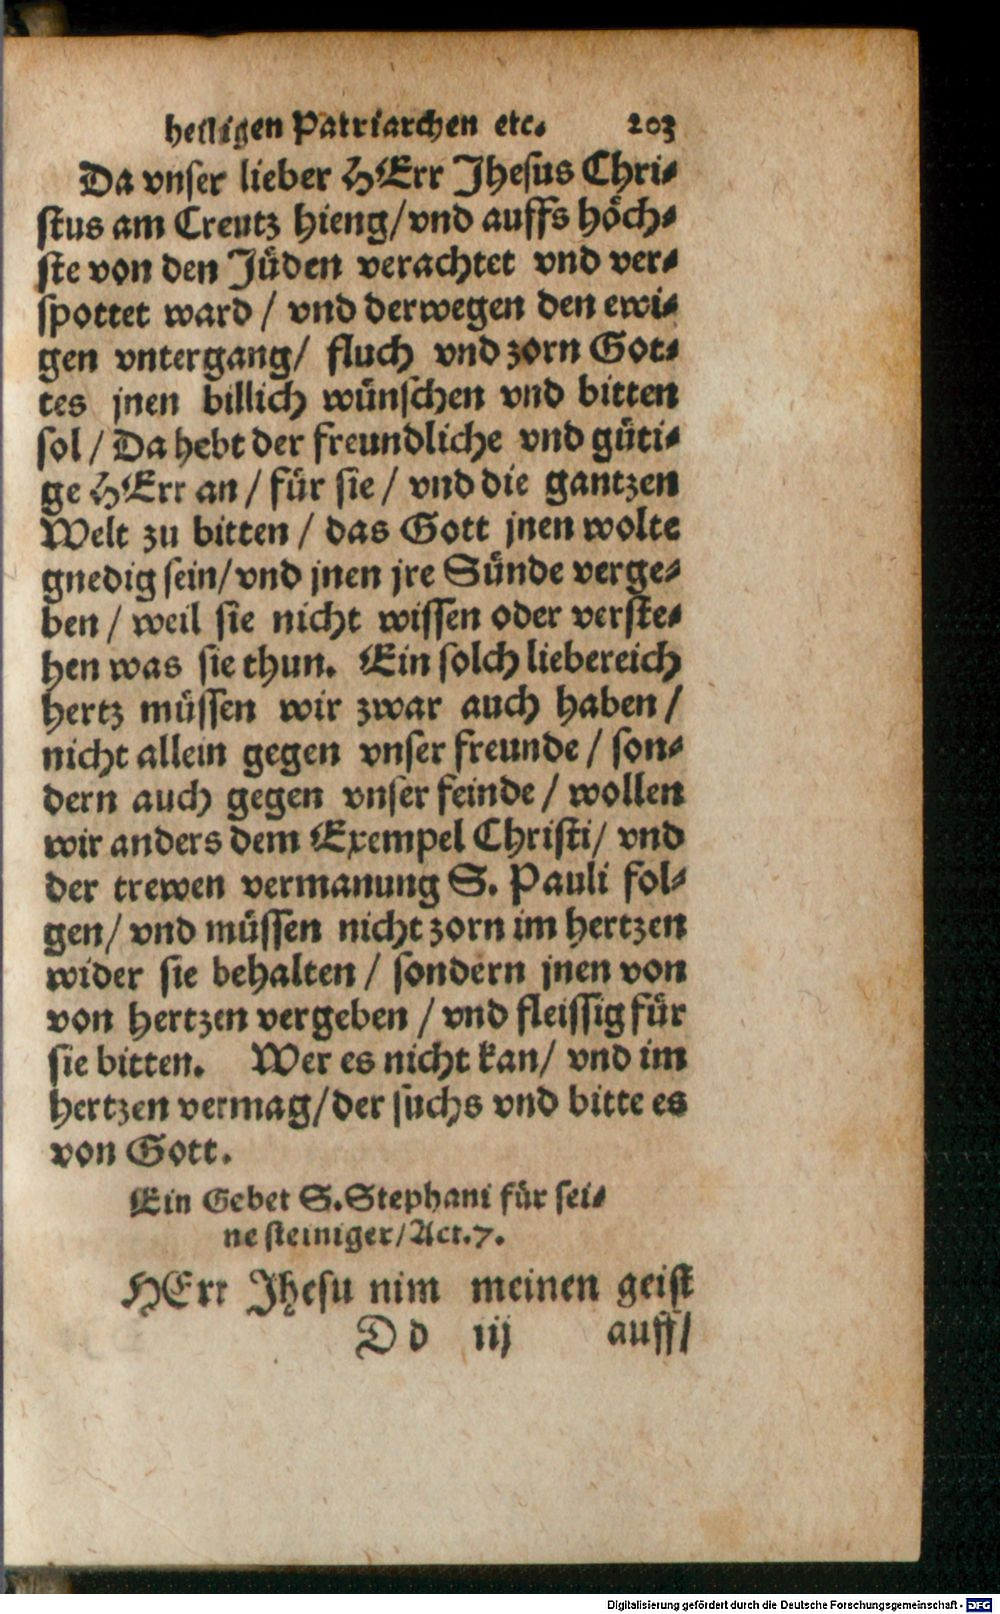 heiligen Patriarchen etc. 203
Da vnser lieber HErr Jhesus Chri-
stus am Creutz hieng/vnd auffs höch-
ste von den Jüden verachtet vnd ver-
spottet ward / vnd derwegen den ewi-
gen vntergang/ fluch vnd zorn Got-
tes jnen billich wünschen vnd bitten
sol / Da hebt der freundliche vnd güti-
ge HErr an / für sie / vnd die gantzen
Welt zu bitten / das Gott jnen wolte
gnedig sein/vnd jnen jre Sünde verge-
ben / weil sie nicht wissen oder verste-
hen was sie thun. Ein solch liebereich
hertz müssen wir zwar auch haben /
nicht allein gegen vnser freunde / son-
dern auch gegen vnser feinde / wollen
wir anders dem Exempel Christi/ vnd
der trewen vermanung S. Pauli fol-
gen/ vnd müssen nicht zorn im hertzen
wider sie behalten / sondern jnen von
von hertzen vergeben / vnd fleissig für
sie bitten. Wer es nicht kan/ vnd im
hertzen vermag/der suchs vnd bitte es
von Gott.
Ein Gebet S. Stephani für sei-
ne steiniger/Act.7.
HErr Jhesu nim meinen geist
D d iij auff/
Digitalisierung gefördert durch die Deutsche Forschungsgemeinschaft - DFG